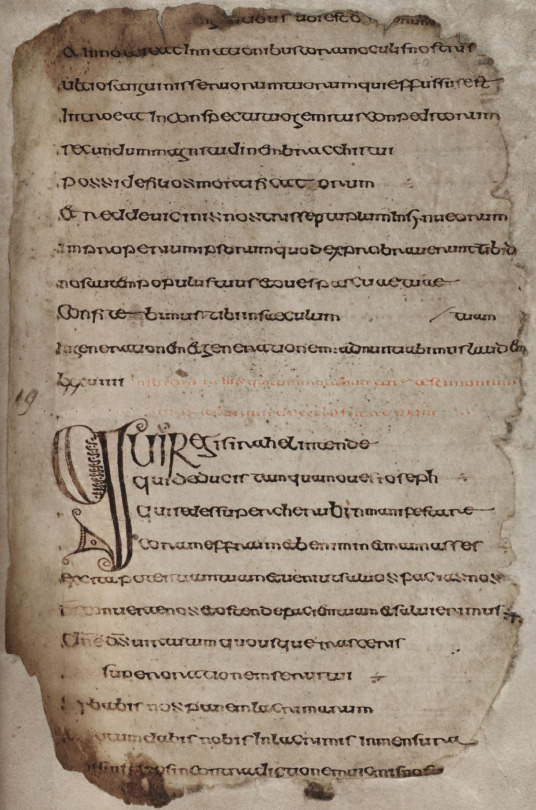 & Innotescat Innationibus coram oculis nostris
ultio sanguinis seruorum tuorum qui effusus est
Introeat Inconspectu tuo gemitus conpeditorum
secundum magnitudinem brachii tui
posside filios mortificatorum
& redde uicinis nostris septuplum Insinu eorum
Inproperium ipsorum quod exprobrauerunt tibi d
nos autem populus tuus & oues pascuae tuae
Confitebimur tibi insaeculum / tuam
Ingeneratione & generationem adnuntiabimus laudem
lxxuiiii
19
QUI Regis israhel intende
qui deducis tamquam oue ioseph
Qui sedes super cherubim manifestare
coram effraim & benimin & manasses
excita potentiam tuam & ueni ut saluos facias nos
conuerte nos & ostende faciem tuam & salui erimus
Dne ds uirtutum quousque irasceris
super orationem serui tui
babis nos pane lacrimarum
potum dabis nobis Inlacrimis Inmensura
nos incontradictionem uicinis nos